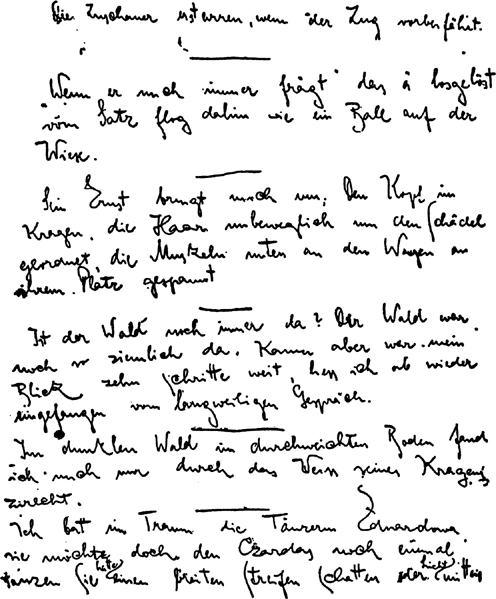 Die Zuschauer erstarren, wenn der Zug vorbeifährt.
"Wenn er mich immer frägt" das ä losgelöst
vom Satz flog dahin wie ein Ball auf der
Wiese.
Sein Ernst bringt mich um. Den Kopf im
Kragen, die Haare unbeweglich um den Schädel
geordnet, die Muskeln unten an den Wangen an
ihrem Platz gespannt
Ist der Wald noch immer da? Der Wald war
noch so ziemlich da. Kaum aber war mein
Blick zehn Schritte weit, liess ich ab wieder
eingefangen vom langweiligen Gespräch.
Im dunklen Wald im durchweichten Boden fand
ich mich nur durch das Weiss seines Kragens
zurecht.
Ich bat im Traum die Tänzerin Eduardowa
sie möchte doch den Czardas noch einmal
tanzen. Sie hatte einen breiten Streifen Schatten oder Licht mitten